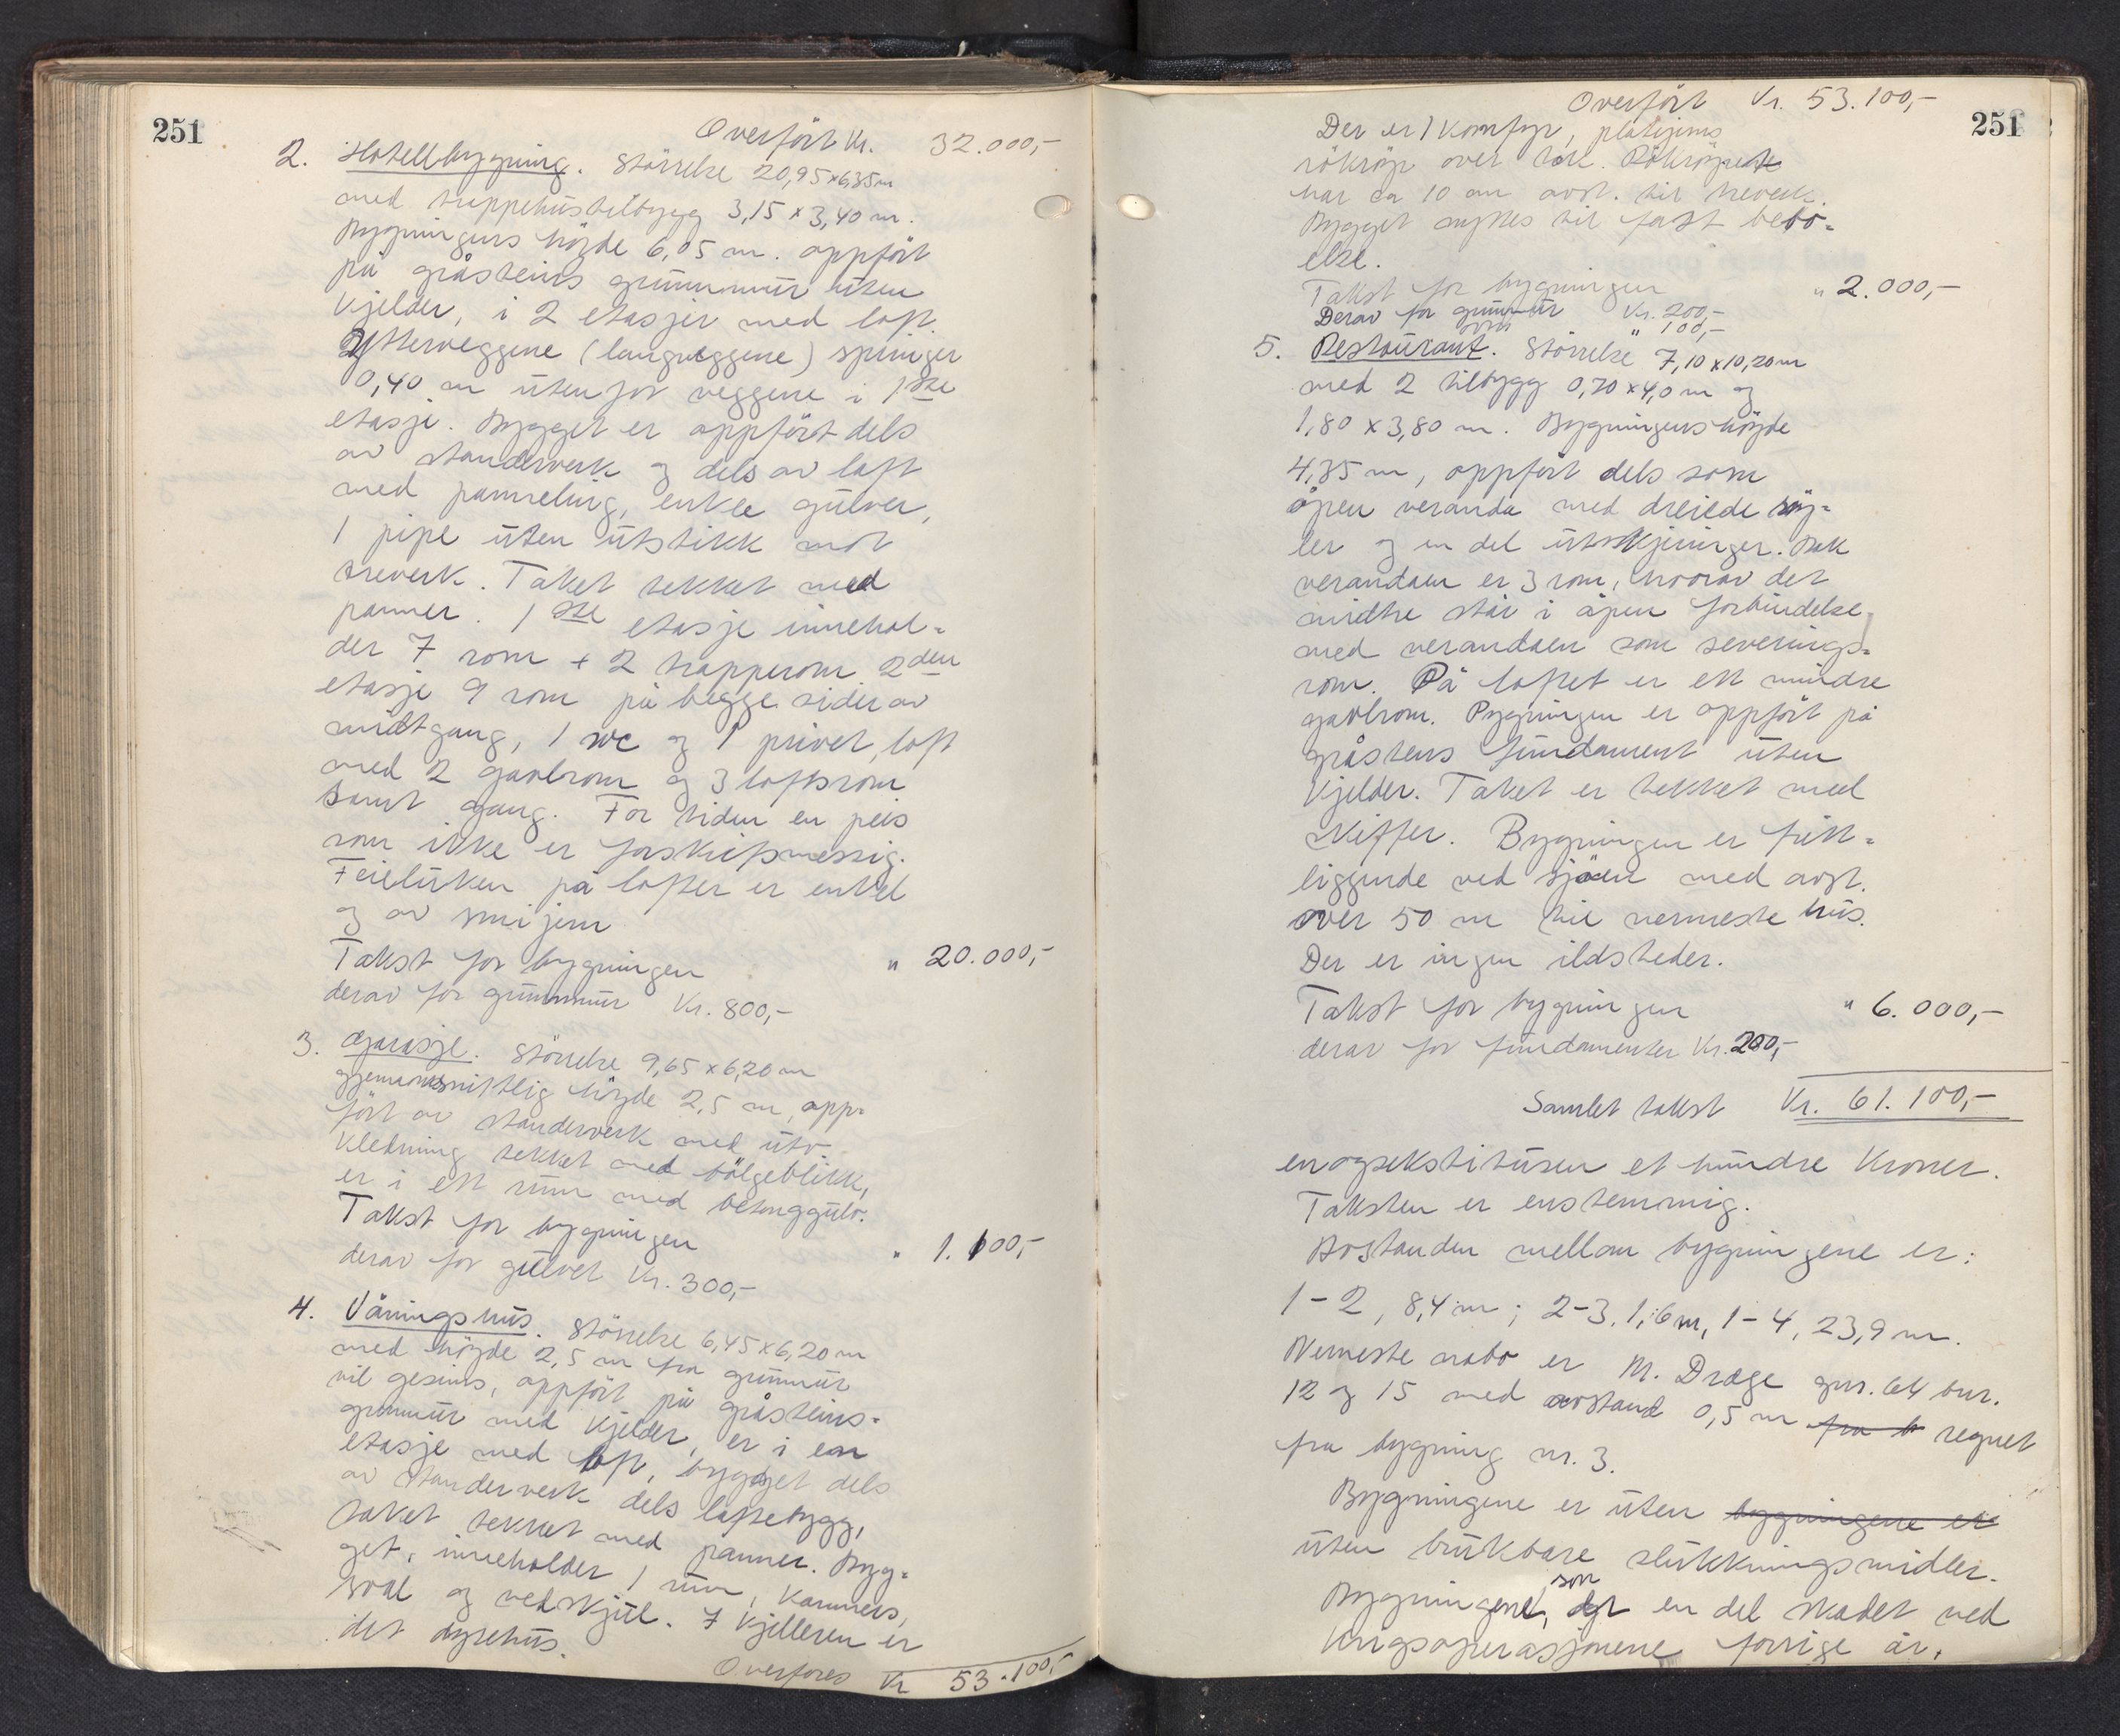 251
Overført Kr. 32.000,-
2. Hotellbygning. Størrelse 20,95 x 6,35 m
med trappehustilbygg 3,15 x 3,40 m.
Bygningens höyde 6,05 m. oppfört
på gråsteins grunnmur uten
kjelder, i 2 etasjer med loft.
Ytterveggene (langveggene) springer
0,40 m utenfor veggene i 1ste
etasje. Bygget er oppfört dels
av standerverk og dels av laft
med panneling, enkle gulver,
1 pipe uten utstikk mot
treverk. Taket tekket med
panner. 1ste etasje innehol-
der 7 rom + 2 trapperom 2den
etasje 9 rom på begge sider av
midtgang, 1 wc og 1 privet, loft
med 2 gavlrom og 3 loftsrom
samt gang. For tiden en peis
som ikke er forskriftsmessig.
Feieluken på loftet er enkel
og av smijern
Takst for bygningen " 20.000,-
derav for grunnmur Kr. 800,-
3. Garasje. Störrelse 9,65 x 6,20 m
gjennomsnittlig höyde 2,5 m, opp-
fört av standerverk med utv.
kledning tekket med bölgeblikk,
er i ett rum med betonggulv.
Takst for bygningen " 1.100,-
derav for gulvet Kr. 300,-
4. Våningshus. Störrelse 6,45 x 6,20 m
med höyde 2,5 m fra grunnmur
til gesims, oppfört på gråsteins-
grunnmur med kjelder, er i en
etasje med loft, bygget dels
av standerverk dels laftebygg,
taket tekket med panner. Byg-
get, inneholder 1 rum, kammers,
sval og vedskjul. I kjelleren er
det dyrehus.
Overföres Kr 53.100,-
251
Overfört Kr. 53.100,-
Der er 1 komfyr, platejerns
rökrör over tak. Rökröret
har ca 10 cm avst. til treverk.
Bygget nyttes til fast bebo-
else.
Takst for bygningen " 2.000,-
Derav for grunnmur Kr. 200,-
ovn " 100,-
5. Restaurant. Störrelse 7,10 x 10,20 m
med 2 tilbygg 0,70 x 4,0 m og
1,80 x 3,80 m. Bygningens höyde
4,35 m, oppfört dels som
åpen veranda med dreiede söy-
ler og en del utskjæringer. Bak
verandaen er 3 rom, hvorav det
midtre står i åpen forbindelse
med verandaen som severings-
rom. På loftet er ett mindre
gavlrom. Bygningen er oppfört på
gråstens fundament uten
kjelder. Taket er tekket med
skiffer. Bygningen er fritt-
liggende ved sjöen med avst.
over 50 m til nermeste hus.
Der er ingen ildsteder.
Takst for bygningen " 6.000,-
derav for fundamenter Kr. 200,-
Samlet takst Kr. 61.100,-
enogsekstitusen et hundre Kroner.
Taksten er enstemmig.
Avstanden mellom bygningene er:
1-2, 8,4 m; 2-3, 1,6 m, 1-4, 23,9 m.
Nermeste nabo er M. Drege gnr. 64 bnr.
12 og 15 med avstand 0,5 m fra b regnet
fra bygning nr. 3.
Bygningene er uten bygningene er
uten brukbare slukkningsmidler.
som
Bygningene, er en del skadet ved
krigsoperasjonene forrige år.